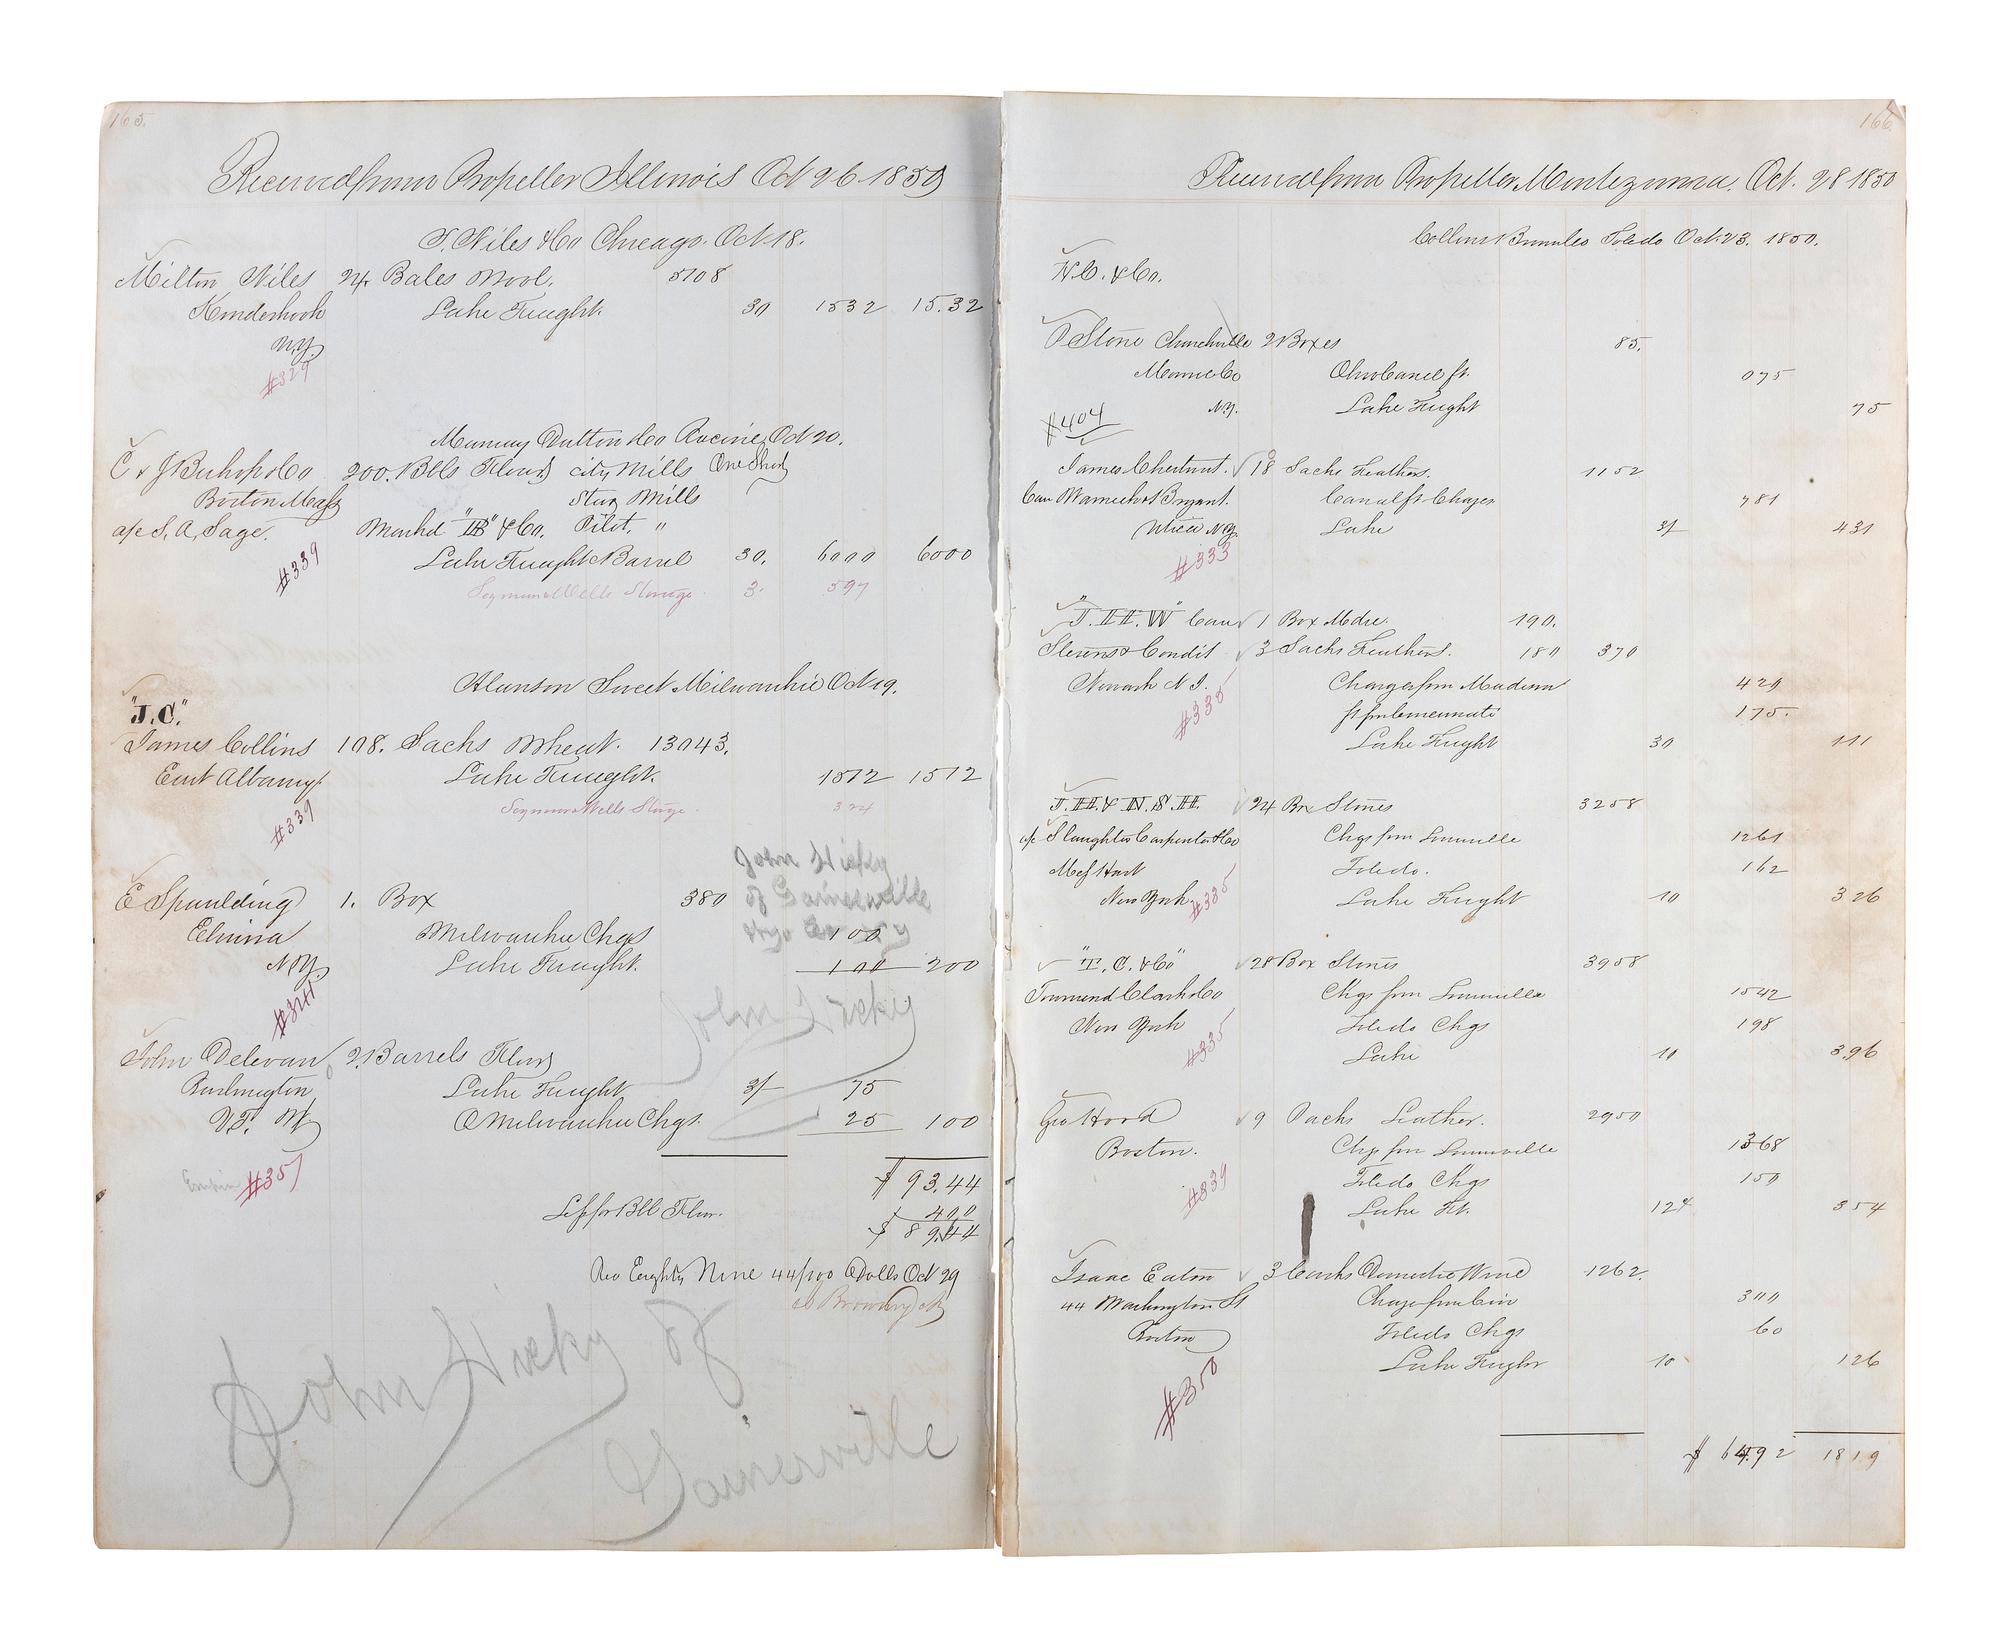 165.
Received from Propeller Illinois Oct 26 1850
T. Niles & Co Chicago. Oct 18.
Milton Niles 24 Bales Wool. 5108
Kinderhook Lake Freight. 30 1532 15.32
N.Y.
#329
Murray Dutton & Co Racine, Oct 20.
C & J Bishop & Co 200. Bbls Flour city Mills One Short
Boston Mass Mills
a/c S. A. Sage. Markd "IB" & Co. Pilot. "
#339 Lake Freight Barrel 30. 6000 6000
Seymour & Wells Storage 3. 597
Alanson Sweet Milwaukie Oct 19.
"J.C."
James Collins 108. Sacks Wheat. 13043.
East Albany Lake Freight. 1512 1512
#339 Seymour & Wells Storage 324
John Hicky
of Gainesville
E Spaulding 1. Box 380
Elmira Milwaukie Chgs 100
N.Y. Lake Freight. 100 200
#341
John Hicky
John Delevan 2 Barrels Flour
Burlington Lake Freight 3/ 75
V.T. Milwaukie Chgs. 25 100
#351
$ 93.44
Less for Bbl Flour. 400
$ 89.44
Rec Eighty Nine 44/100 Dolls Oct 29
John Hicky of
Gainesville
166
Received from Propeller Montezuma. Oct. 28 1850
Collins Toledo Oct. 23. 1850.
H.C. & Co.
P Stone Churchville 2 Boxes 85.
Monroe Co Ohio Canal ft. 075
N.Y. Lake Freight 75
#404
James Chestnut. 18 Sacks Feathers. 1152
Care Warnick & Bryant. Canal ft & Charges 781
Utica N.Y. Lake 3/ 431
#333
"J.H.W" Care 1 Box Mdse. 190.
Stevens & Condit 3 Sacks Feathers. 180 370
Newark N.J. Charges from Madison 429
#335 ft from Cincinnati 175.
Lake Freight 30 111
J.H. & N.S.H. 24 Box Stones 3258
a/c Slaughter Carpenter & Co Chgs from Louisville 1261
Toledo. 162
New York Lake Freight 10 326
#335
"T.C. & Co" 28 Box Stones 3958
Townsend Clark & Co Chgs from Louisville 1542
New York Toledo Chgs 198
#335 Lake 10 3.96
Geo Hood 9 Packs Leather. 2950
Boston. Chgs from Louisville 1368
#339 Toledo Chgs 150
Lake Ft. 12 354
Isaac Eaton 3 Casks Domestic Wine 1262.
44 Washington St Charges from Cin 300
Boston Toledo Chgs 60
Lake Freight 10 126
#350
$ 64.92 1819